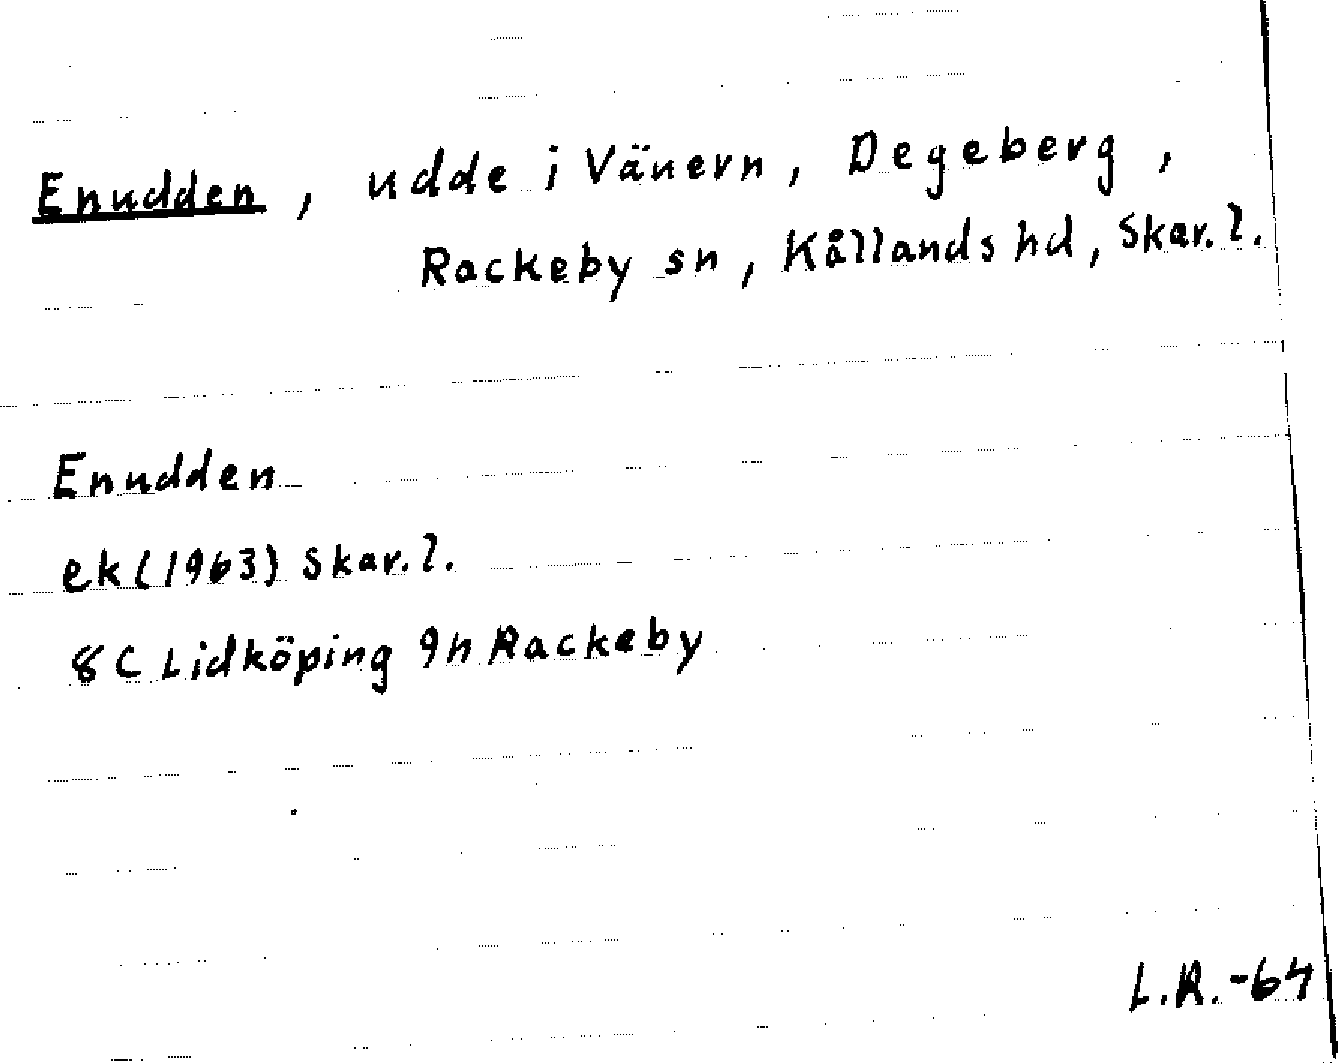 Enudden, udde i Vänern, Degeberg,
Rackeby sn, Kållands hd, Skar. l.
Enudden
ek (1963) Skar. l.
8C Lidköping 9h Rackeby
L.R. -64